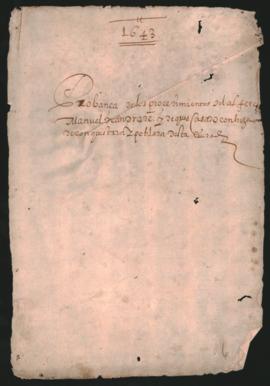 1643
Probança de los procedimientos del alferez
Manuel de andrade y de que Casado con hija
de conquistador y poblador desta